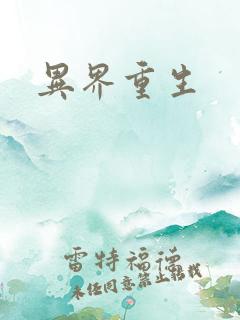 異界重生
雷特福德
未经同意禁止转载